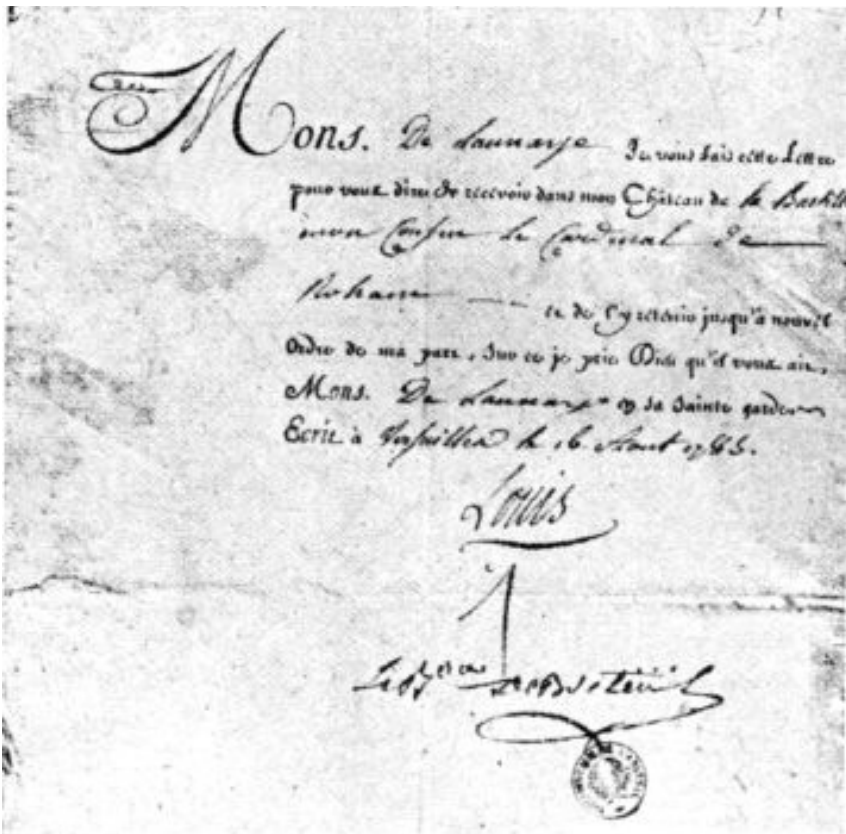 Mons. De Launaye Je vous fais cette Lettre
pour vous dire de recevoir dans mon Château de la Bastille
mon Cousin le Cardinal de
Rohan et de l'y retenir jusqu'à nouvel
Ordre de ma part, Sur ce je prie Dieu qu'il vous ait,
Mons. De Launaye en sa Sainte garde
Ecrit à Versailles le 16 Aout 1785.
Louis
Le Bon De Breteuil